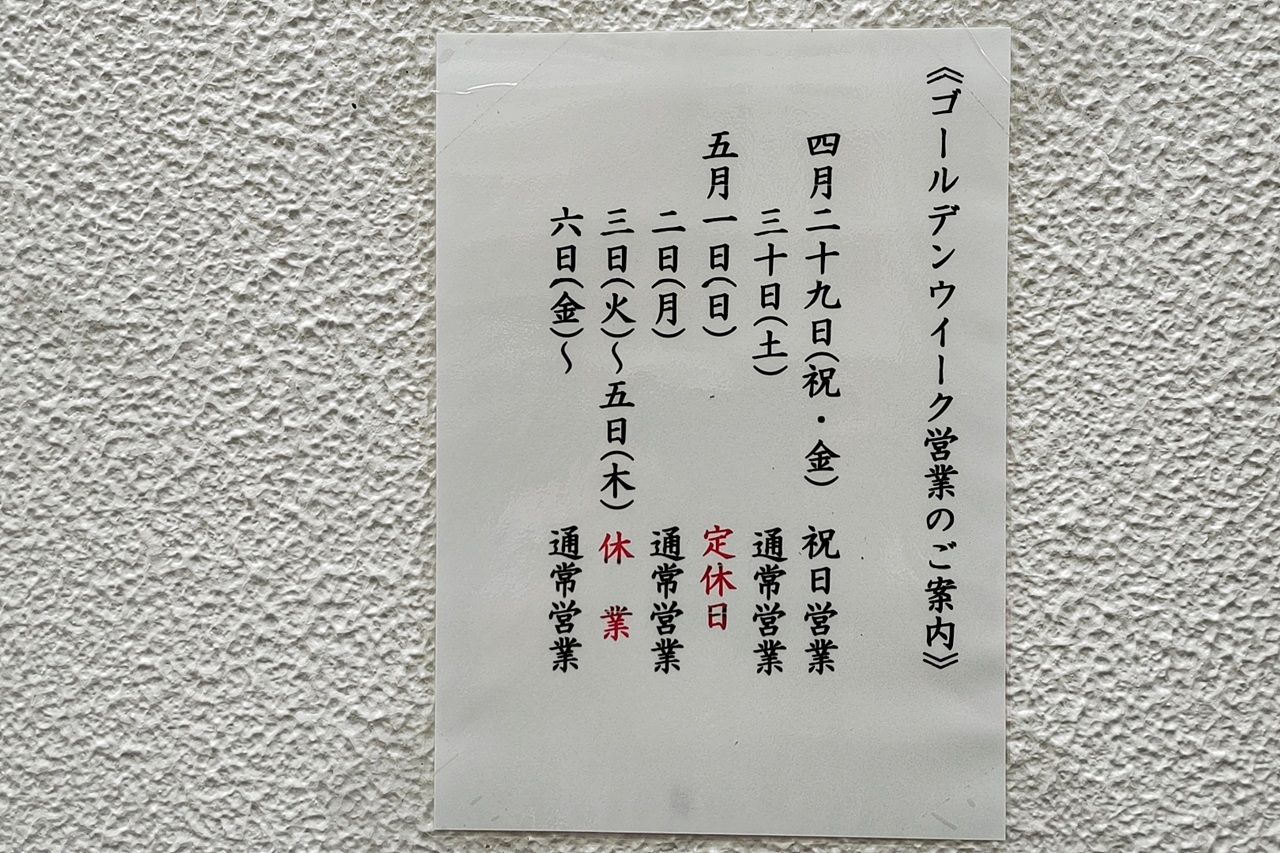 《ゴールデンウイーク営業のご案内》
四月二十九日(祝・金) 祝日営業
三十日(土) 通常営業
五月一日(日) 定休日
二日(月) 通常営業
三日(火)～五日(木) 休 業
六日(金)～ 通常営業